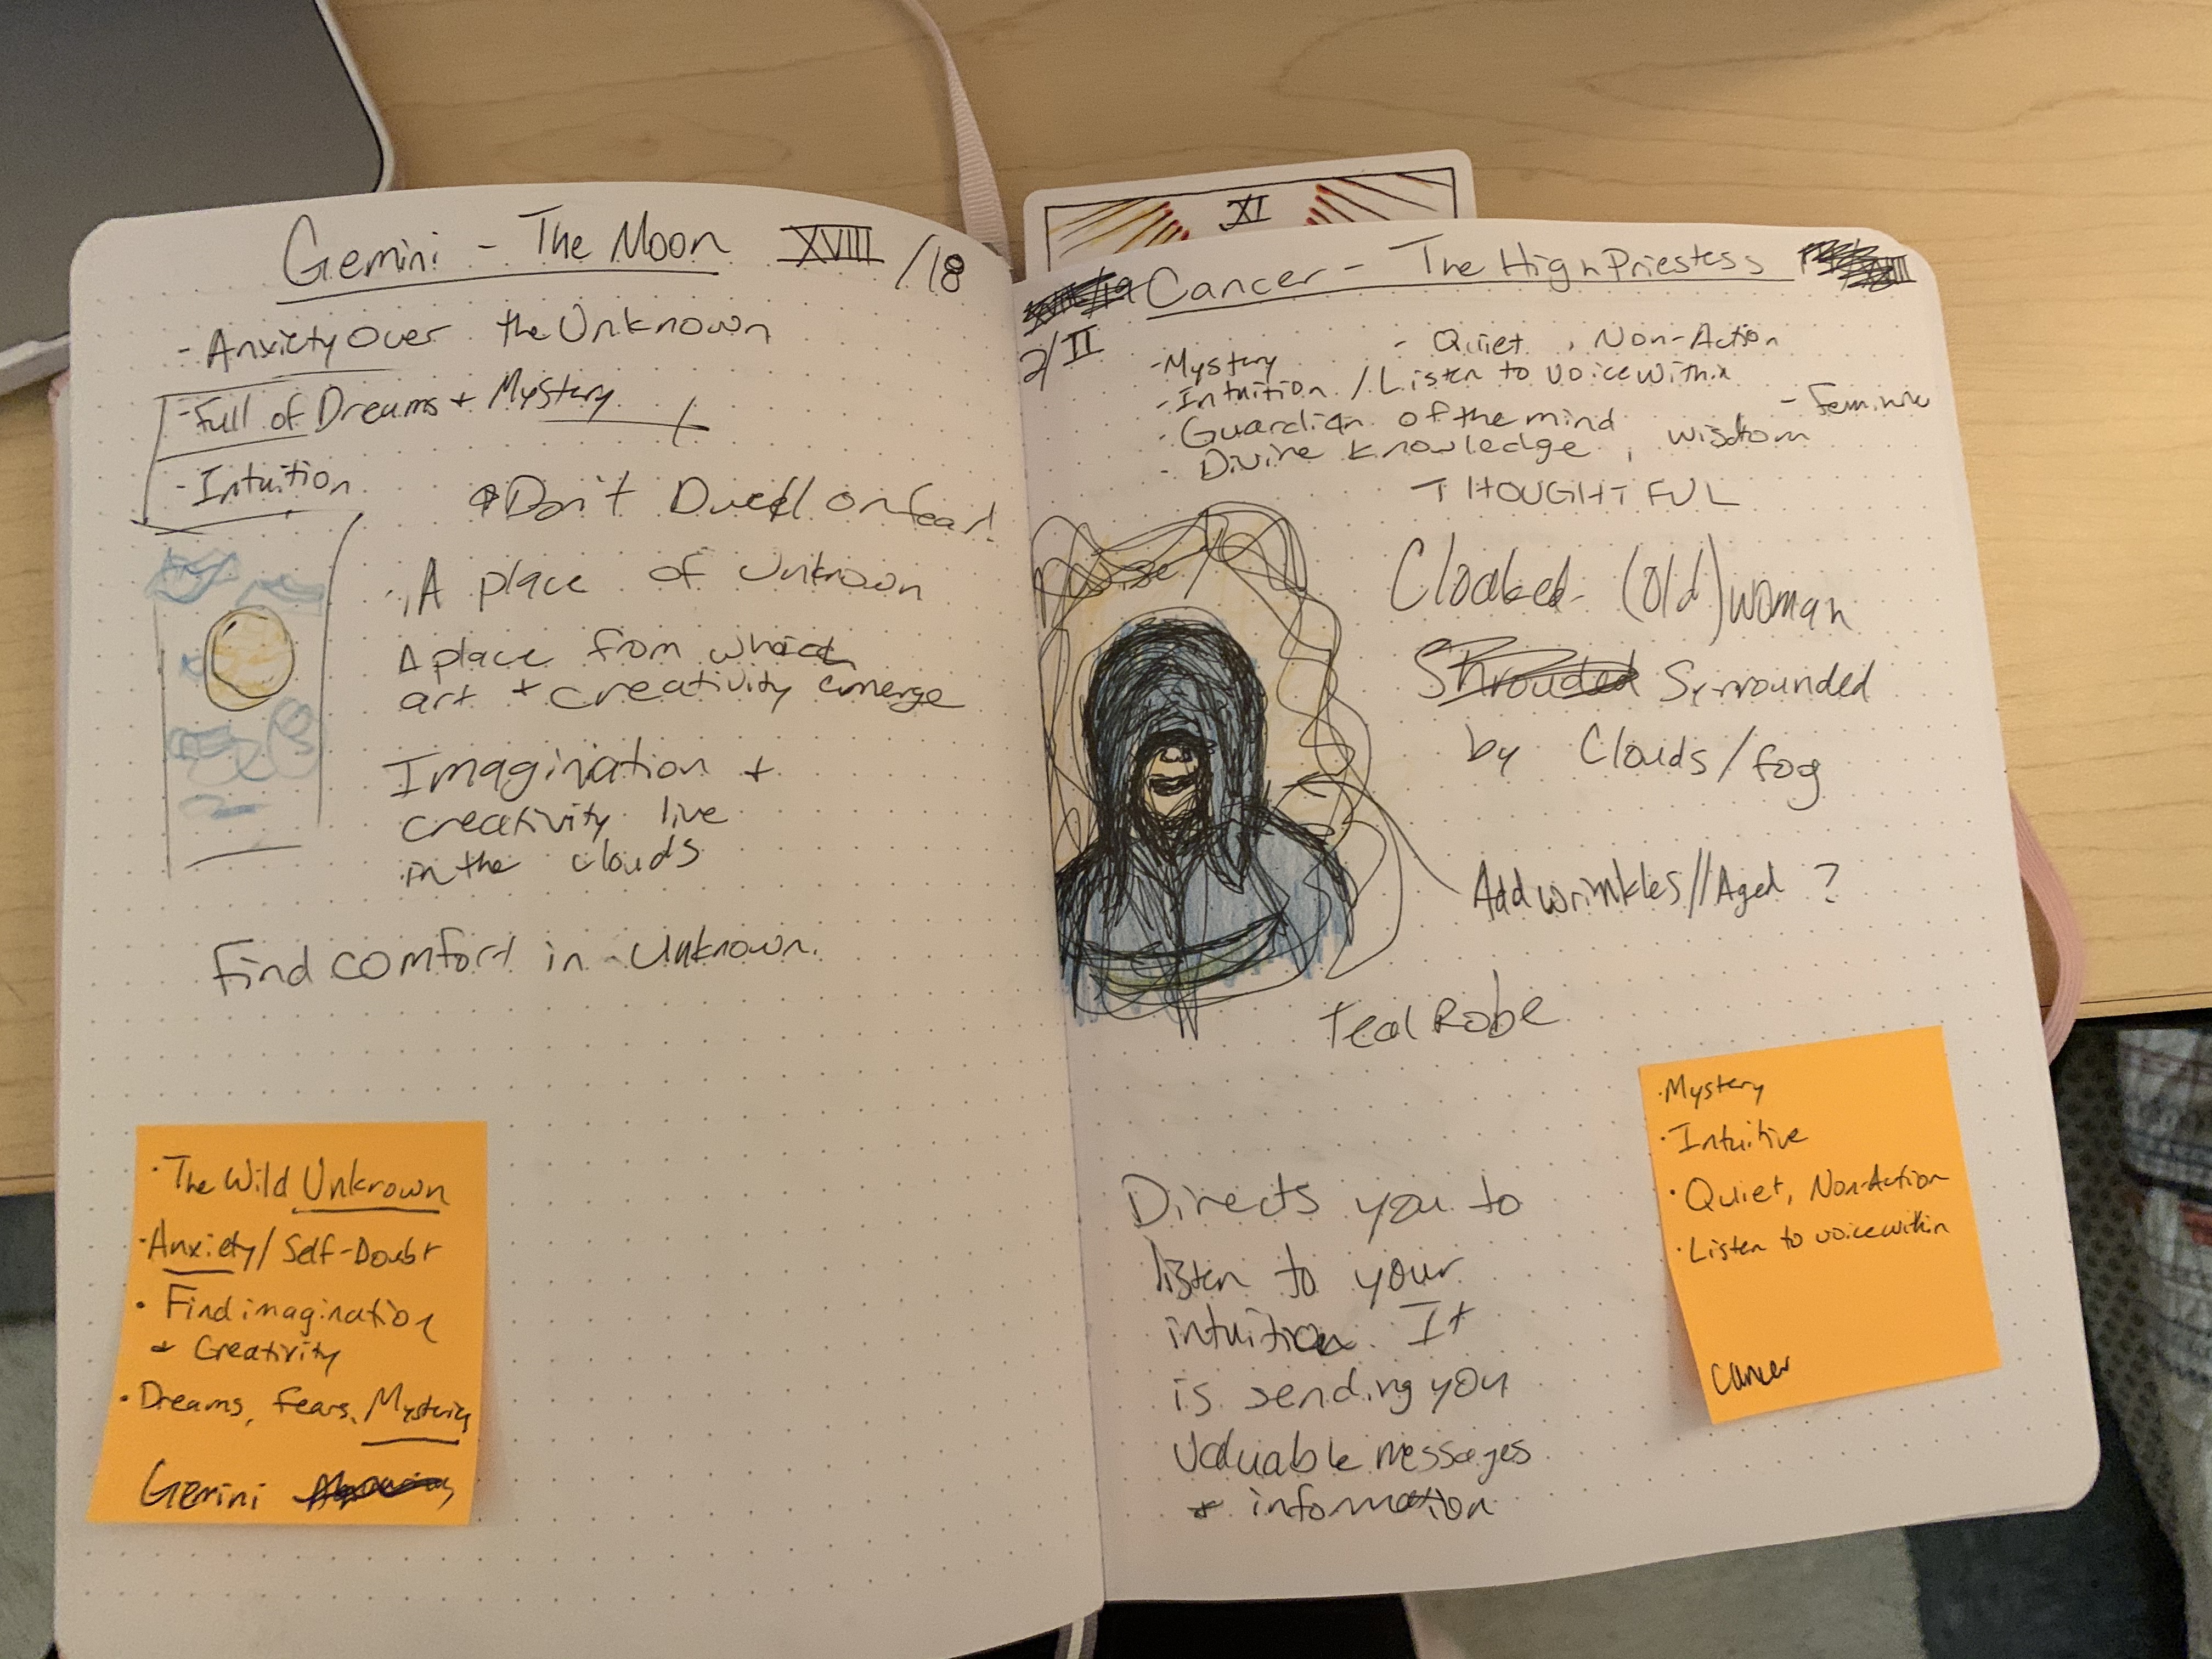 Gemini - The Moon XVIII /18
- Anxiety Over the Unknown
- Full of Dreams + Mystery
- Intuition
Don't Dwell on fear!
A place of Unknown
A place from which
art + creativity emerge
Imagination +
creativity live
in the clouds
Find comfort in Unknown.
· The Wild Unknown
· Anxiety/Self-Doubt
· Find imagination
+ Creativity
· Dreams, Fears,
Gemini
XI
Cancer - The High Priestess
2/II
- Mystery
- Quiet, Non-Action
- Intuition / Listen to voice within
- Guardian of the mind
- Feminine
- Divine knowledge, wisdom
THOUGHTFUL
Cloaked (old) woman
Shrouded Surrounded
by Clouds/fog
Add wrinkles//Aged ?
Teal Robe
Directs you to
listen to your
intuition. It
is sending you
valuable messages
+ information
· Mystery
· Intuitive
· Quiet, Non-Action
· Listen to voice within
Cancer